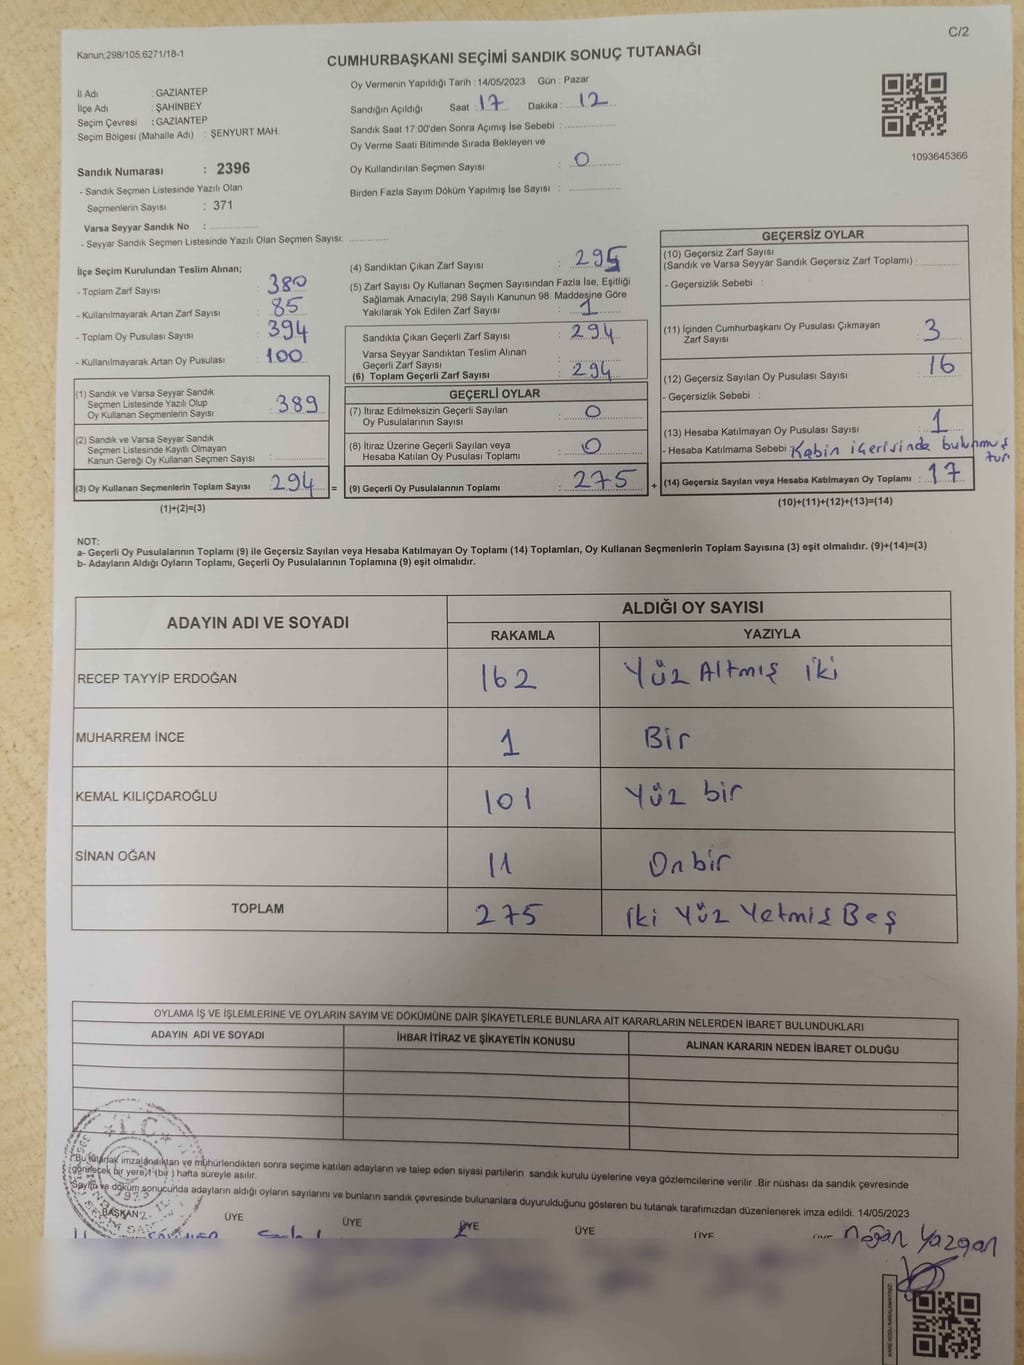 Kanun;298/105,6271/18-1
C/2
CUMHURBAŞKANI SEÇİMİ SANDIK SONUÇ TUTANAĞI
İl Adı : GAZİANTEP
İlçe Adı : ŞAHİNBEY
Seçim Çevresi : GAZİANTEP
Seçim Bölgesi (Mahalle Adı) : ŞENYURT MAH.
Sandık Numarası : 2396
- Sandık Seçmen Listesinde Yazılı Olan
Seçmenlerin Sayısı : 371
Varsa Seyyar Sandık No :
- Seyyar Sandık Seçmen Listesinde Yazılı Olan Seçmen Sayısı:
Oy Vermenin Yapıldığı Tarih : 14/05/2023 Gün : Pazar
Sandığın Açıldığı Saat : 17 Dakika : 12
Sandık Saat 17:00'den Sonra Açımış İse Sebebi :
Oy Verme Saati Bitiminde Sırada Bekleyen ve
Oy Kullandırılan Seçmen Sayısı : 0
Birden Fazla Sayım Döküm Yapılmış İse Sayısı :
1093645366
İlçe Seçim Kurulundan Teslim Alınan;
- Toplam Zarf Sayısı : 380
- Kullanılmayarak Artan Zarf Sayısı : 85
- Toplam Oy Pusulası Sayısı : 394
- Kullanılmayarak Artan Oy Pusulası : 100
(1) Sandık ve Varsa Seyyar Sandık
Seçmen Listesinde Yazılı Olup
Oy Kullanan Seçmenlerin Sayısı : 389
(2) Sandık ve Varsa Seyyar Sandık
Seçmen Listesinde Kayıtlı Olmayan
Kanun Gereği Oy Kullanan Seçmen Sayısı :
(3) Oy Kullanan Seçmenlerin Toplam Sayısı : 294 =
(1)+(2)=(3)
(4) Sandıktan Çıkan Zarf Sayısı : 295
(5) Zarf Sayısı Oy Kullanan Seçmen Sayısından Fazla İse, Eşitliği
Sağlamak Amacıyla, 298 Sayılı Kanunun 98. Maddesine Göre
Yakılarak Yok Edilen Zarf Sayısı : 1
Sandıkta Çıkan Geçerli Zarf Sayısı : 294
Varsa Seyyar Sandıktan Teslim Alınan
Geçerli Zarf Sayısı :
(6) Toplam Geçerli Zarf Sayısı : 294
GEÇERLİ OYLAR
(7) İtiraz Edilmeksizin Geçerli Sayılan
Oy Pusulalarının Sayısı : 0
(8) İtiraz Üzerine Geçerli Sayılan veya
Hesaba Katılan Oy Pusulası Toplamı : 0
(9) Geçerli Oy Pusulalarının Toplamı : 275 +
GEÇERSİZ OYLAR
(10) Geçersiz Zarf Sayısı
(Sandık ve Varsa Seyyar Sandık Geçersiz Zarf Toplamı) :
- Geçersizlik Sebebi :
(11) İçinden Cumhurbaşkanı Oy Pusulası Çıkmayan
Zarf Sayısı : 3
(12) Geçersiz Sayılan Oy Pusulası Sayısı : 16
- Geçersizlik Sebebi :
(13) Hesaba Katılmayan Oy Pusulası Sayısı : 1
- Hesaba Katılmama Sebebi : Kabin içerisinde bulunmuş
tur
(14) Geçersiz Sayılan veya Hesaba Katılmayan Oy Toplamı : 17
(10)+(11)+(12)+(13)=(14)
NOT:
a- Geçerli Oy Pusulalarının Toplamı (9) ile Geçersiz Sayılan veya Hesaba Katılmayan Oy Toplamı (14) Toplamları, Oy Kullanan Seçmenlerin Toplam Sayısına (3) eşit olmalıdır. (9)+(14)=(3)
b- Adayların Aldığı Oyların Toplamı, Geçerli Oy Pusulalarının Toplamına (9) eşit olmalıdır.
ADAYIN ADI VE SOYADI
ALDIĞI OY SAYISI
RAKAMLA YAZIYLA
RECEP TAYYİP ERDOĞAN 162 Yüz Altmış iki
MUHARREM İNCE 1 Bir
KEMAL KILIÇDAROĞLU 101 Yüz bir
SİNAN OĞAN 11 Onbir
TOPLAM 275 iki Yüz Yetmiş Beş
OYLAMA İŞ VE İŞLEMLERİNE VE OYLARIN SAYIM VE DÖKÜMÜNE DAİR ŞİKAYETLERLE BUNLARA AİT KARARLARIN NELERDEN İBARET BULUNDUKLARI
ADAYIN ADI VE SOYADI İHBAR İTİRAZ VE ŞİKAYETİN KONUSU ALINAN KARARIN NEDEN İBARET OLDUĞU
T.C.
1923
Bu tutanak imzalandıktan ve mühürlendikten sonra seçime katılan adayların ve talep eden siyasi partilerin sandık kurulu üyelerine veya gözlemcilerine verilir. Bir nüshası da sandık çevresinde
görülecek bir yere 1 (bir ) hafta süreyle asılır.
Sayım ve döküm sonucunda adayların aldığı oyların sayılarını ve bunların sandık çevresinde bulunanlara duyurulduğunu gösteren bu tutanak tarafımızdan düzenlenerek imza edildi. 14/05/2023
BAŞKAN ÜYE ÜYE ÜYE ÜYE ÜYE
Doğan Yazgan